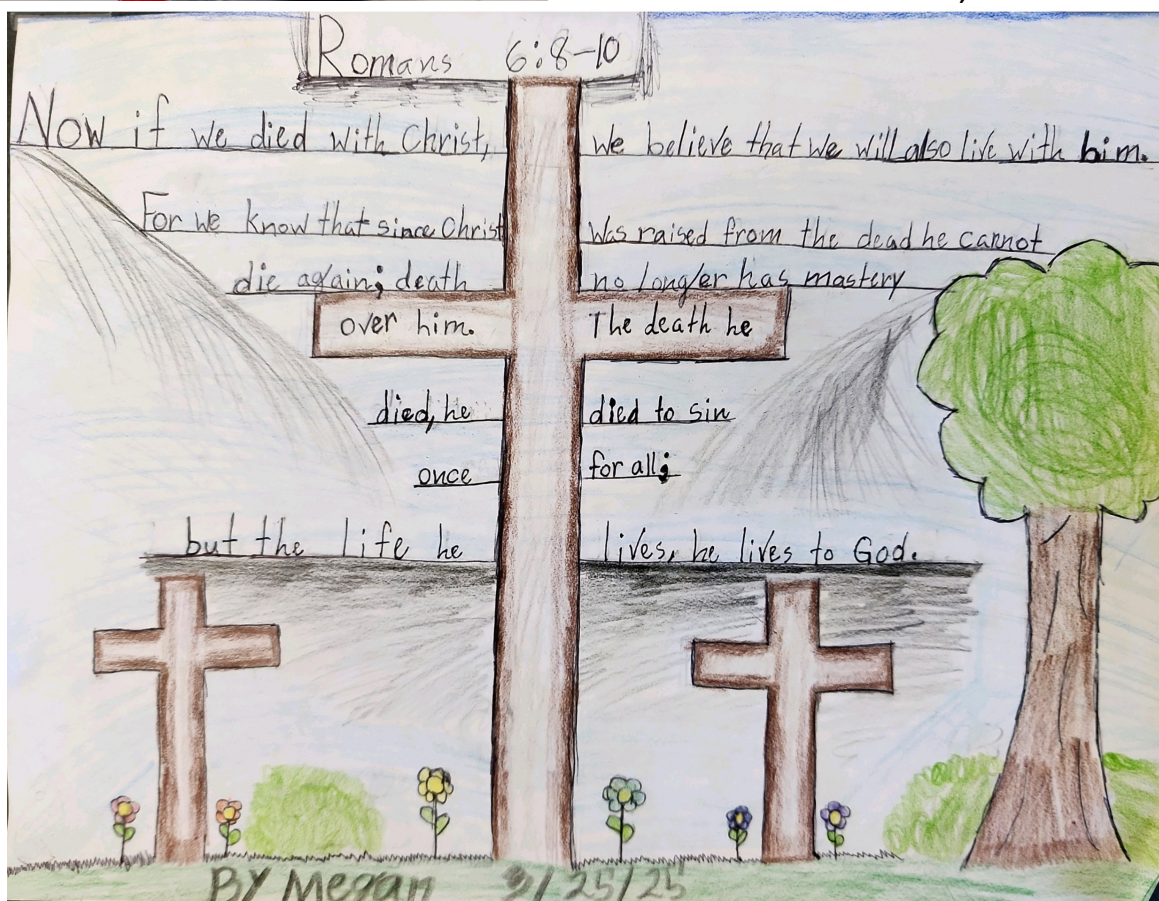 Romans 6:8-10
Now if we died with Christ, we believe that we will also live with him.
For we know that since Christ was raised from the dead he cannot
die again; death no longer has mastery
over him. The death he
died, he died to sin
once for all;
but the life he lives, he lives to God.
By Megan 3/25/25